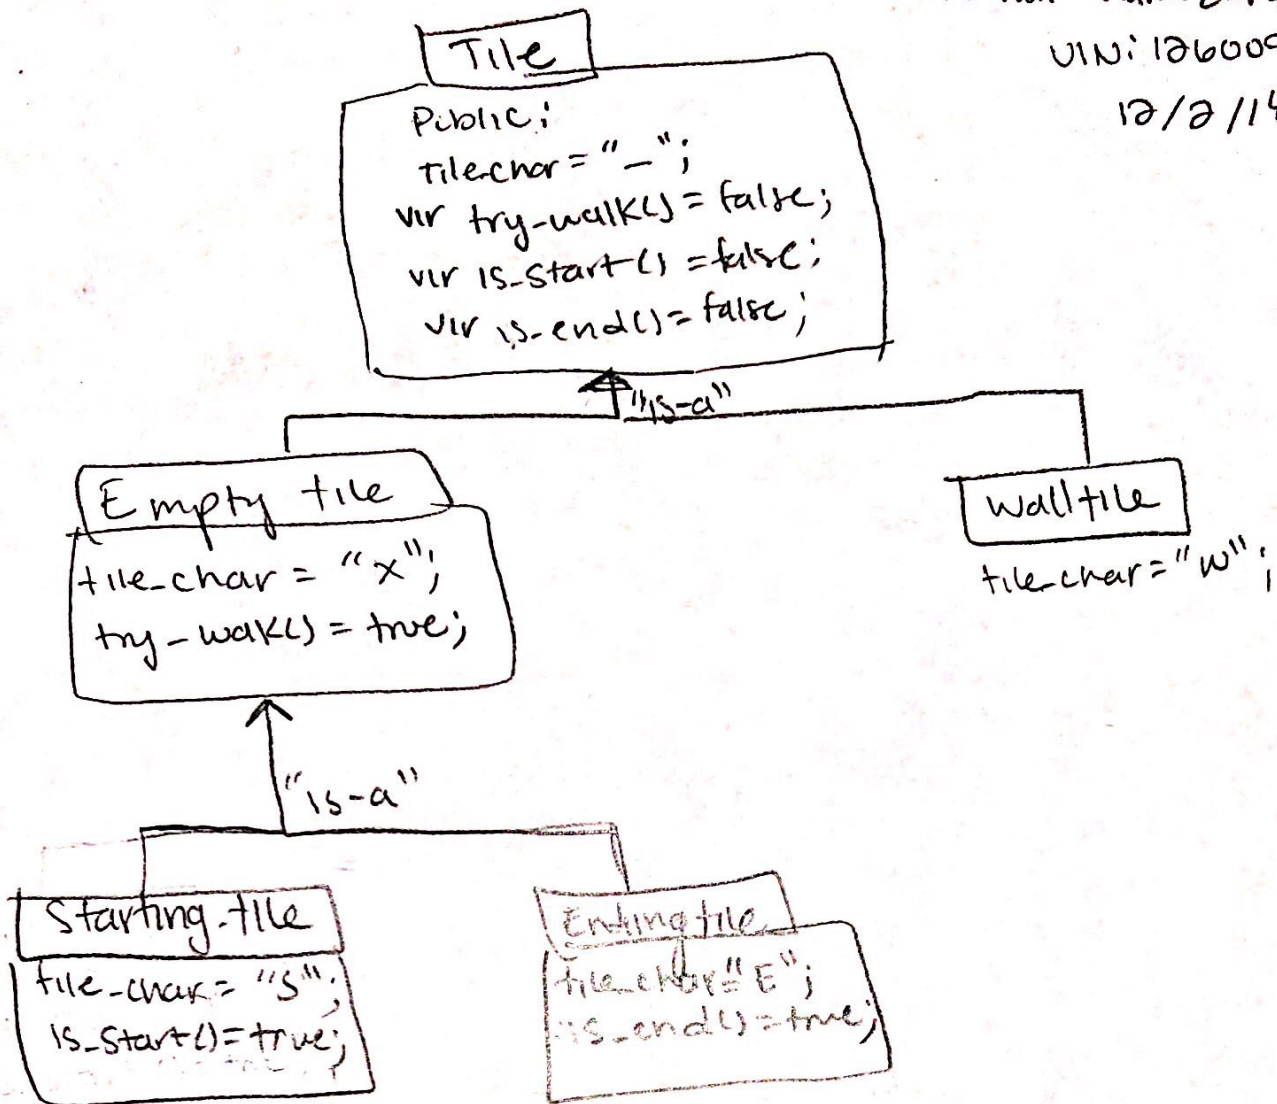 UIN: 126009
12/2/14
Tile
Public:
tile_char = "_";
vir try_walk() = false;
vir is_start() = false;
vir is_end() = false;
"is-a"
Empty tile
tile_char = "x";
try_walk() = true;
walltile
tile_char = "w";
"is-a"
Starting tile
tile_char = "S";
is_start() = true;
tile_char = "E";
is_end() = true;